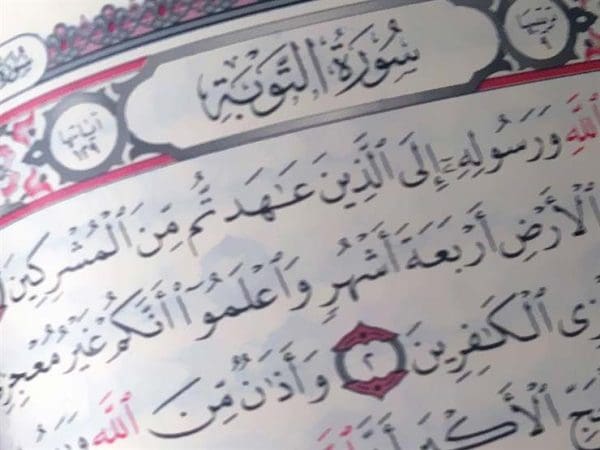 ترتيبها ٩
سُورَةُ التَّوْبَةِ
آياتها ١٢٩
ٱللَّهِ وَرَسُولِهِۦٓ إِلَى ٱلَّذِينَ عَٰهَدتُّم مِّنَ ٱلْمُشْرِكِينَ
ٱلْأَرْضِ أَرْبَعَةَ أَشْهُرٍ وَٱعْلَمُوٓا۟ أَنَّكُمْ غَيْرُ مُعْجِزِى
ٱلْكَٰفِرِينَ ٢ وَأَذَٰنٌ مِّنَ ٱللَّهِ
ٱلْأَكْبَرِ أَنَّ